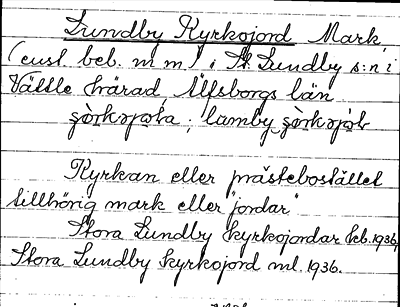 Lundby Kyrkojord Mark,
(enst. beb. m m) i St. Lundby s:n i
Vättle härad Älfsborgs län.
Kyrkan eller prästebostället
tillhörig mark eller "jordar"
Stora Lundby kyrkojordar hb. 1936,
Stora Lundby kyrkojord ml. 1936.